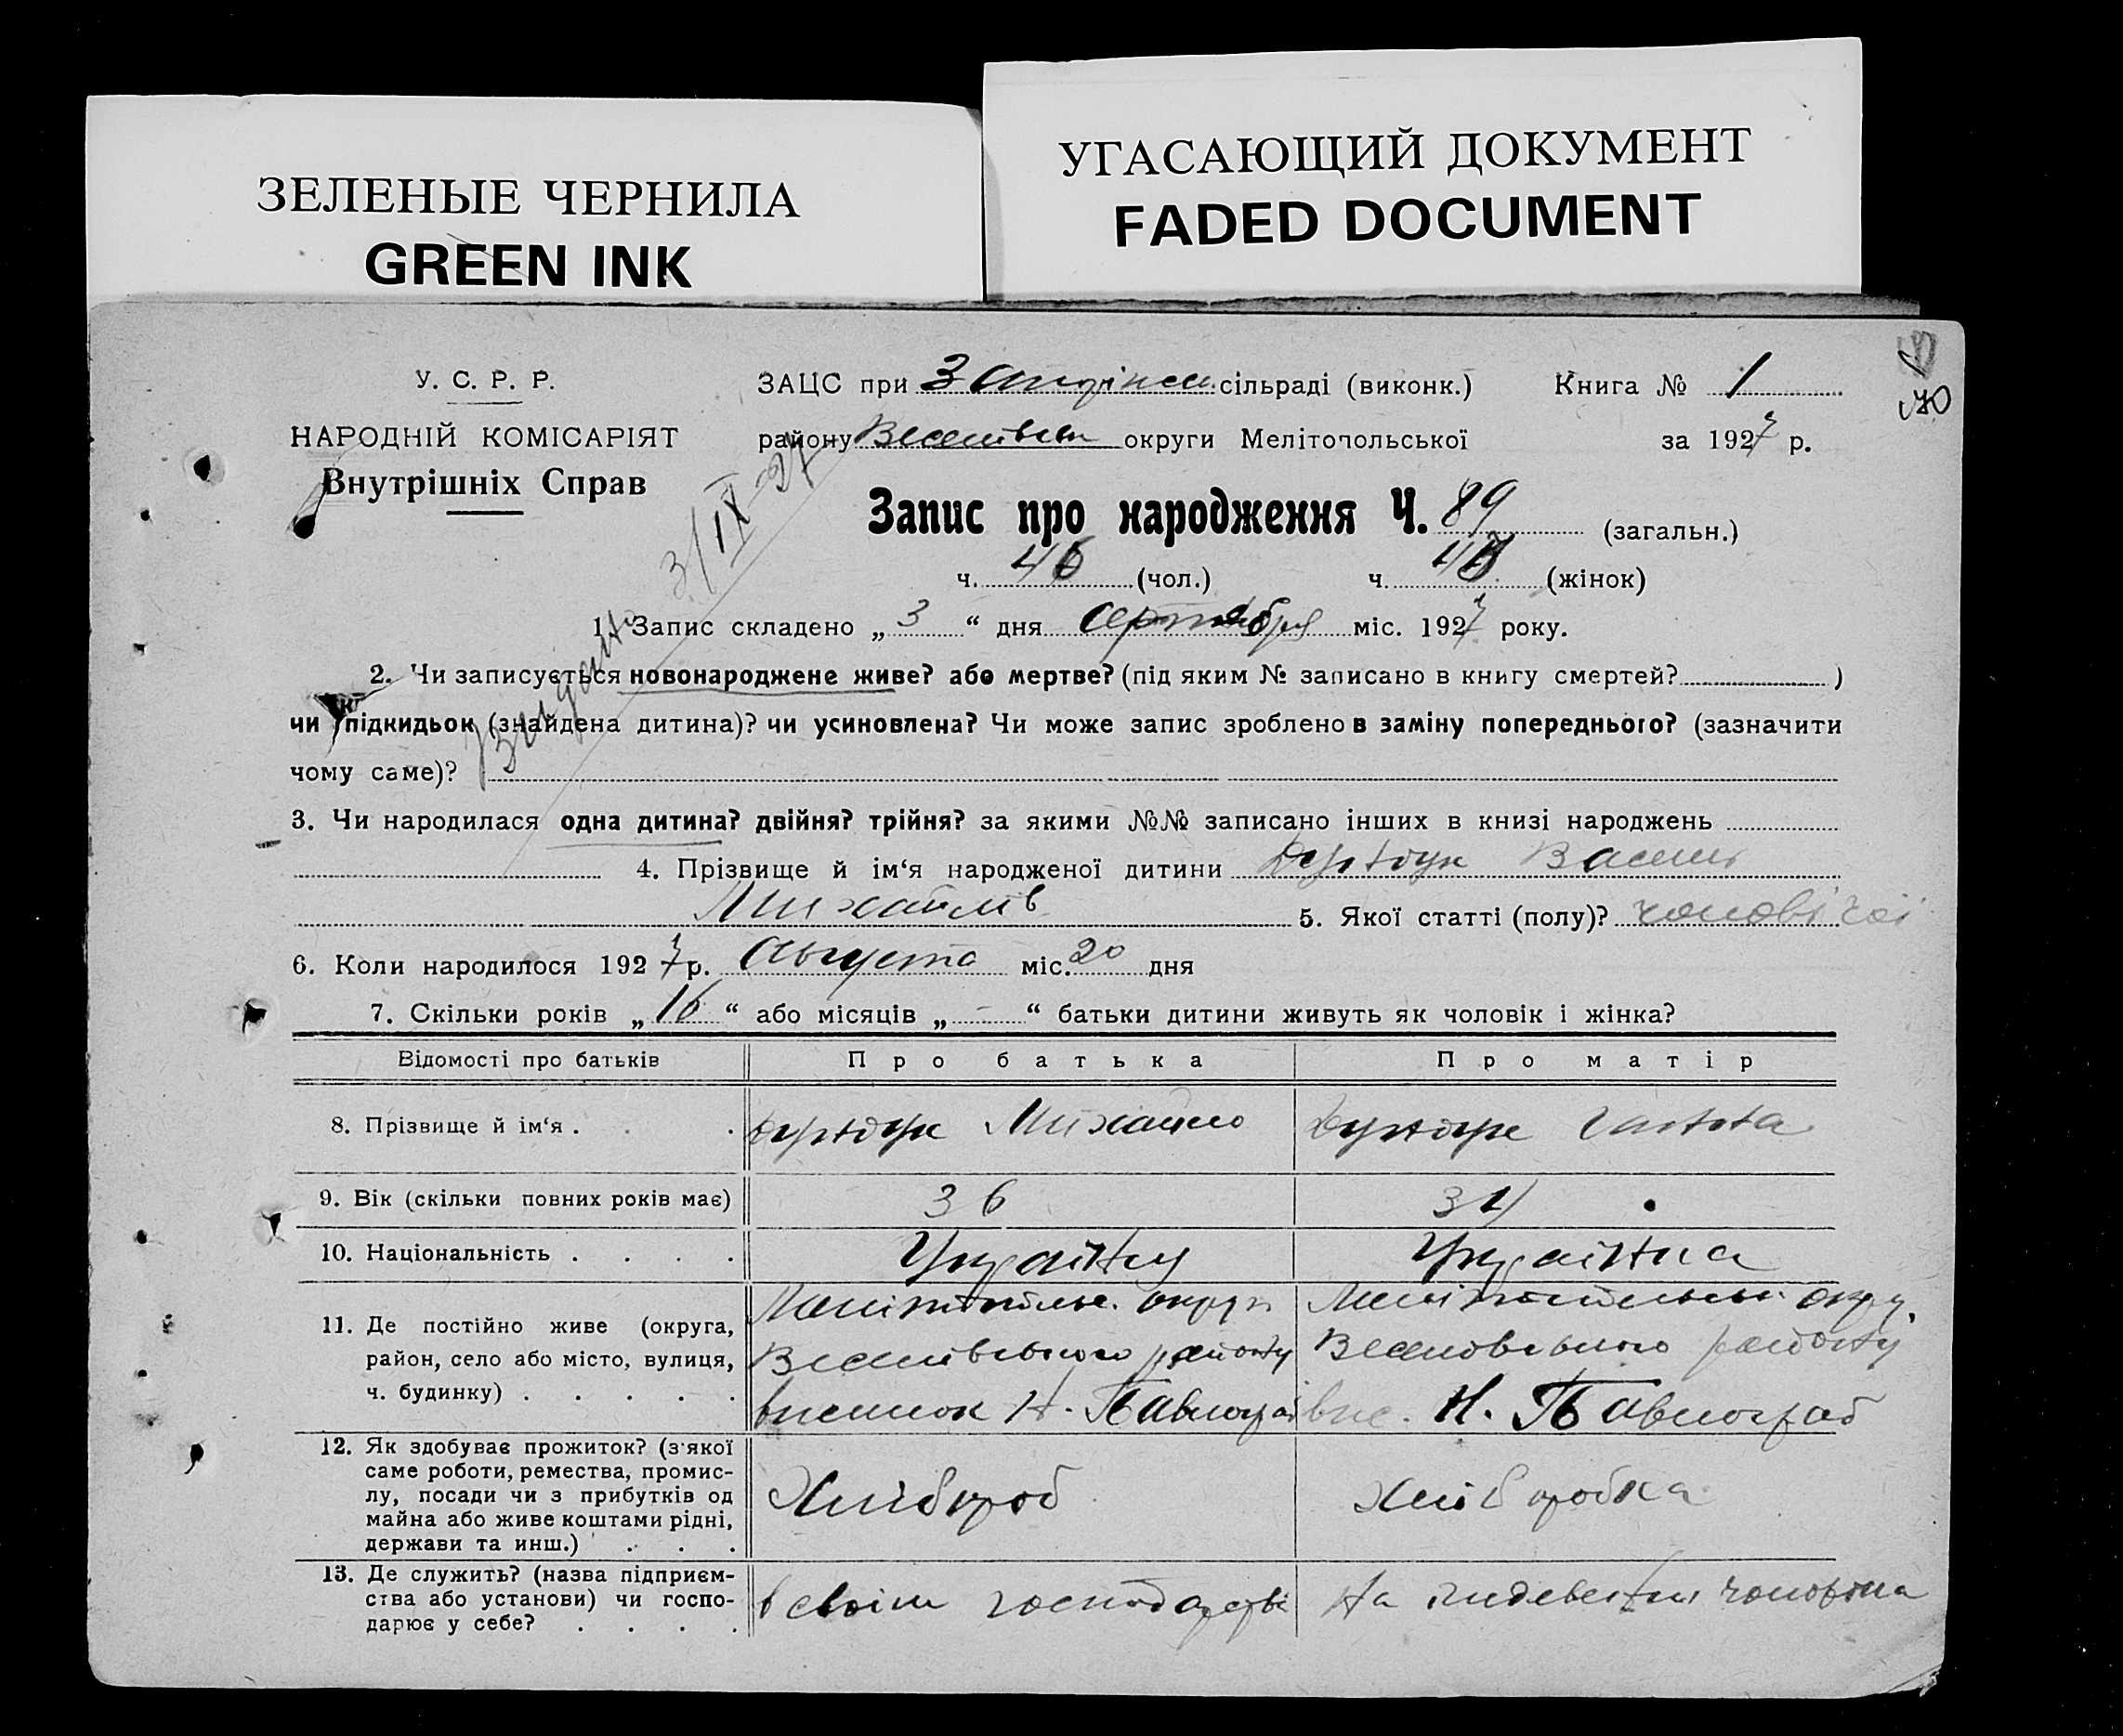 ЗЕЛЕНЫЕ ЧЕРНИЛА
GREEN INK
УГАСАЮЩИЙ ДОКУМЕНТ
FADED DOCUMENT
У. С. Р. Р.
НАРОДНІЙ КОМІСАРІЯТ
Внутрішніх Справ
ЗАЦС при сільраді (виконк.) Книга № 1
району округи Мелітопольської за 1927 р.
Запис про народження Ч. 89 (загальн.)
ч. 46 (чол.) ч. (жінок)
3/IX-27
1. Запис складено „ 3 “ дня міс. 1927 року.
2. Чи записується новонароджене живе? або мертве? (під яким № записано в книгу смертей? )
чи підкидьок (знайдена дитина)? чи усиновлена? Чи може запис зроблено в заміну попереднього? (зазначити
чому саме)?
3. Чи народилася одна дитина? двійня? трійня? за якими №№ записано інших в книзі народжень
4. Прізвище й ім‘я народженої дитини Василь
Михайлів 5. Якої статті (полу)? чоловічої
6. Коли народилося 1927 р. Августа міс. 20 дня
7. Скільки років „ 16 “ або місяців „ - “ батьки дитини живуть як чоловік і жінка?
Відомості про батьків Про батька Про матір
8. Прізвище й ім‘я . . . Михайло
9. Вік (скільки повних років має) 36 34
10. Національність . . . .
11. Де постійно живе (округа,
район, село або місто, вулиця,
ч. будинку) . . . . .
Мелітопільс. округи
Веселівського району
виселок Н. Павлоград
округ.
Веселовського району
вис. Н. Павлоград
12. Як здобуває прожиток? (з'якої
саме роботи, ремества, промис-
лу, посади чи з прибутків од
майна або живе коштами рідні,
держави та инш.) . . .
Хлібороб
Хліборобка
13. Де служить? (назва підприєм-
ства або установи) чи госпо-
дарює у себе? . . . .
в своїм господарстві
На чоловіка